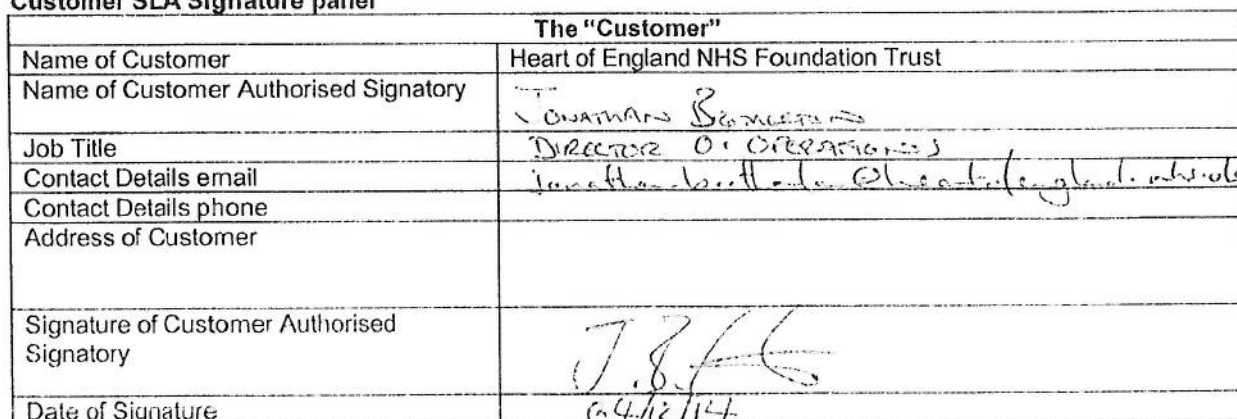 Customer SLA Signature panel
The "Customer"
Name of Customer Heart of England NHS Foundation Trust
Name of Customer Authorised Signatory JONATHAN
Job Title DIRECTOR OF OPERATIONS
Contact Details email
Contact Details phone
Address of Customer
Signature of Customer Authorised
Signatory
Date of Signature 04/12/14